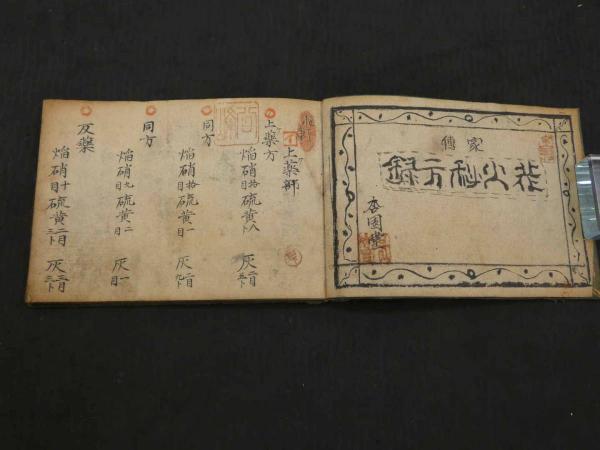 家傳
花火秘方録
上薬部
上薬方
焔硝拾目 硫黄八卜 灰二目
同方
焔硝拾目 硫黄一目 灰二目
同方
焔硝九目 硫黄二目 灰一目
薬
焔硝十目 硫黄二目三卜 灰三目三卜